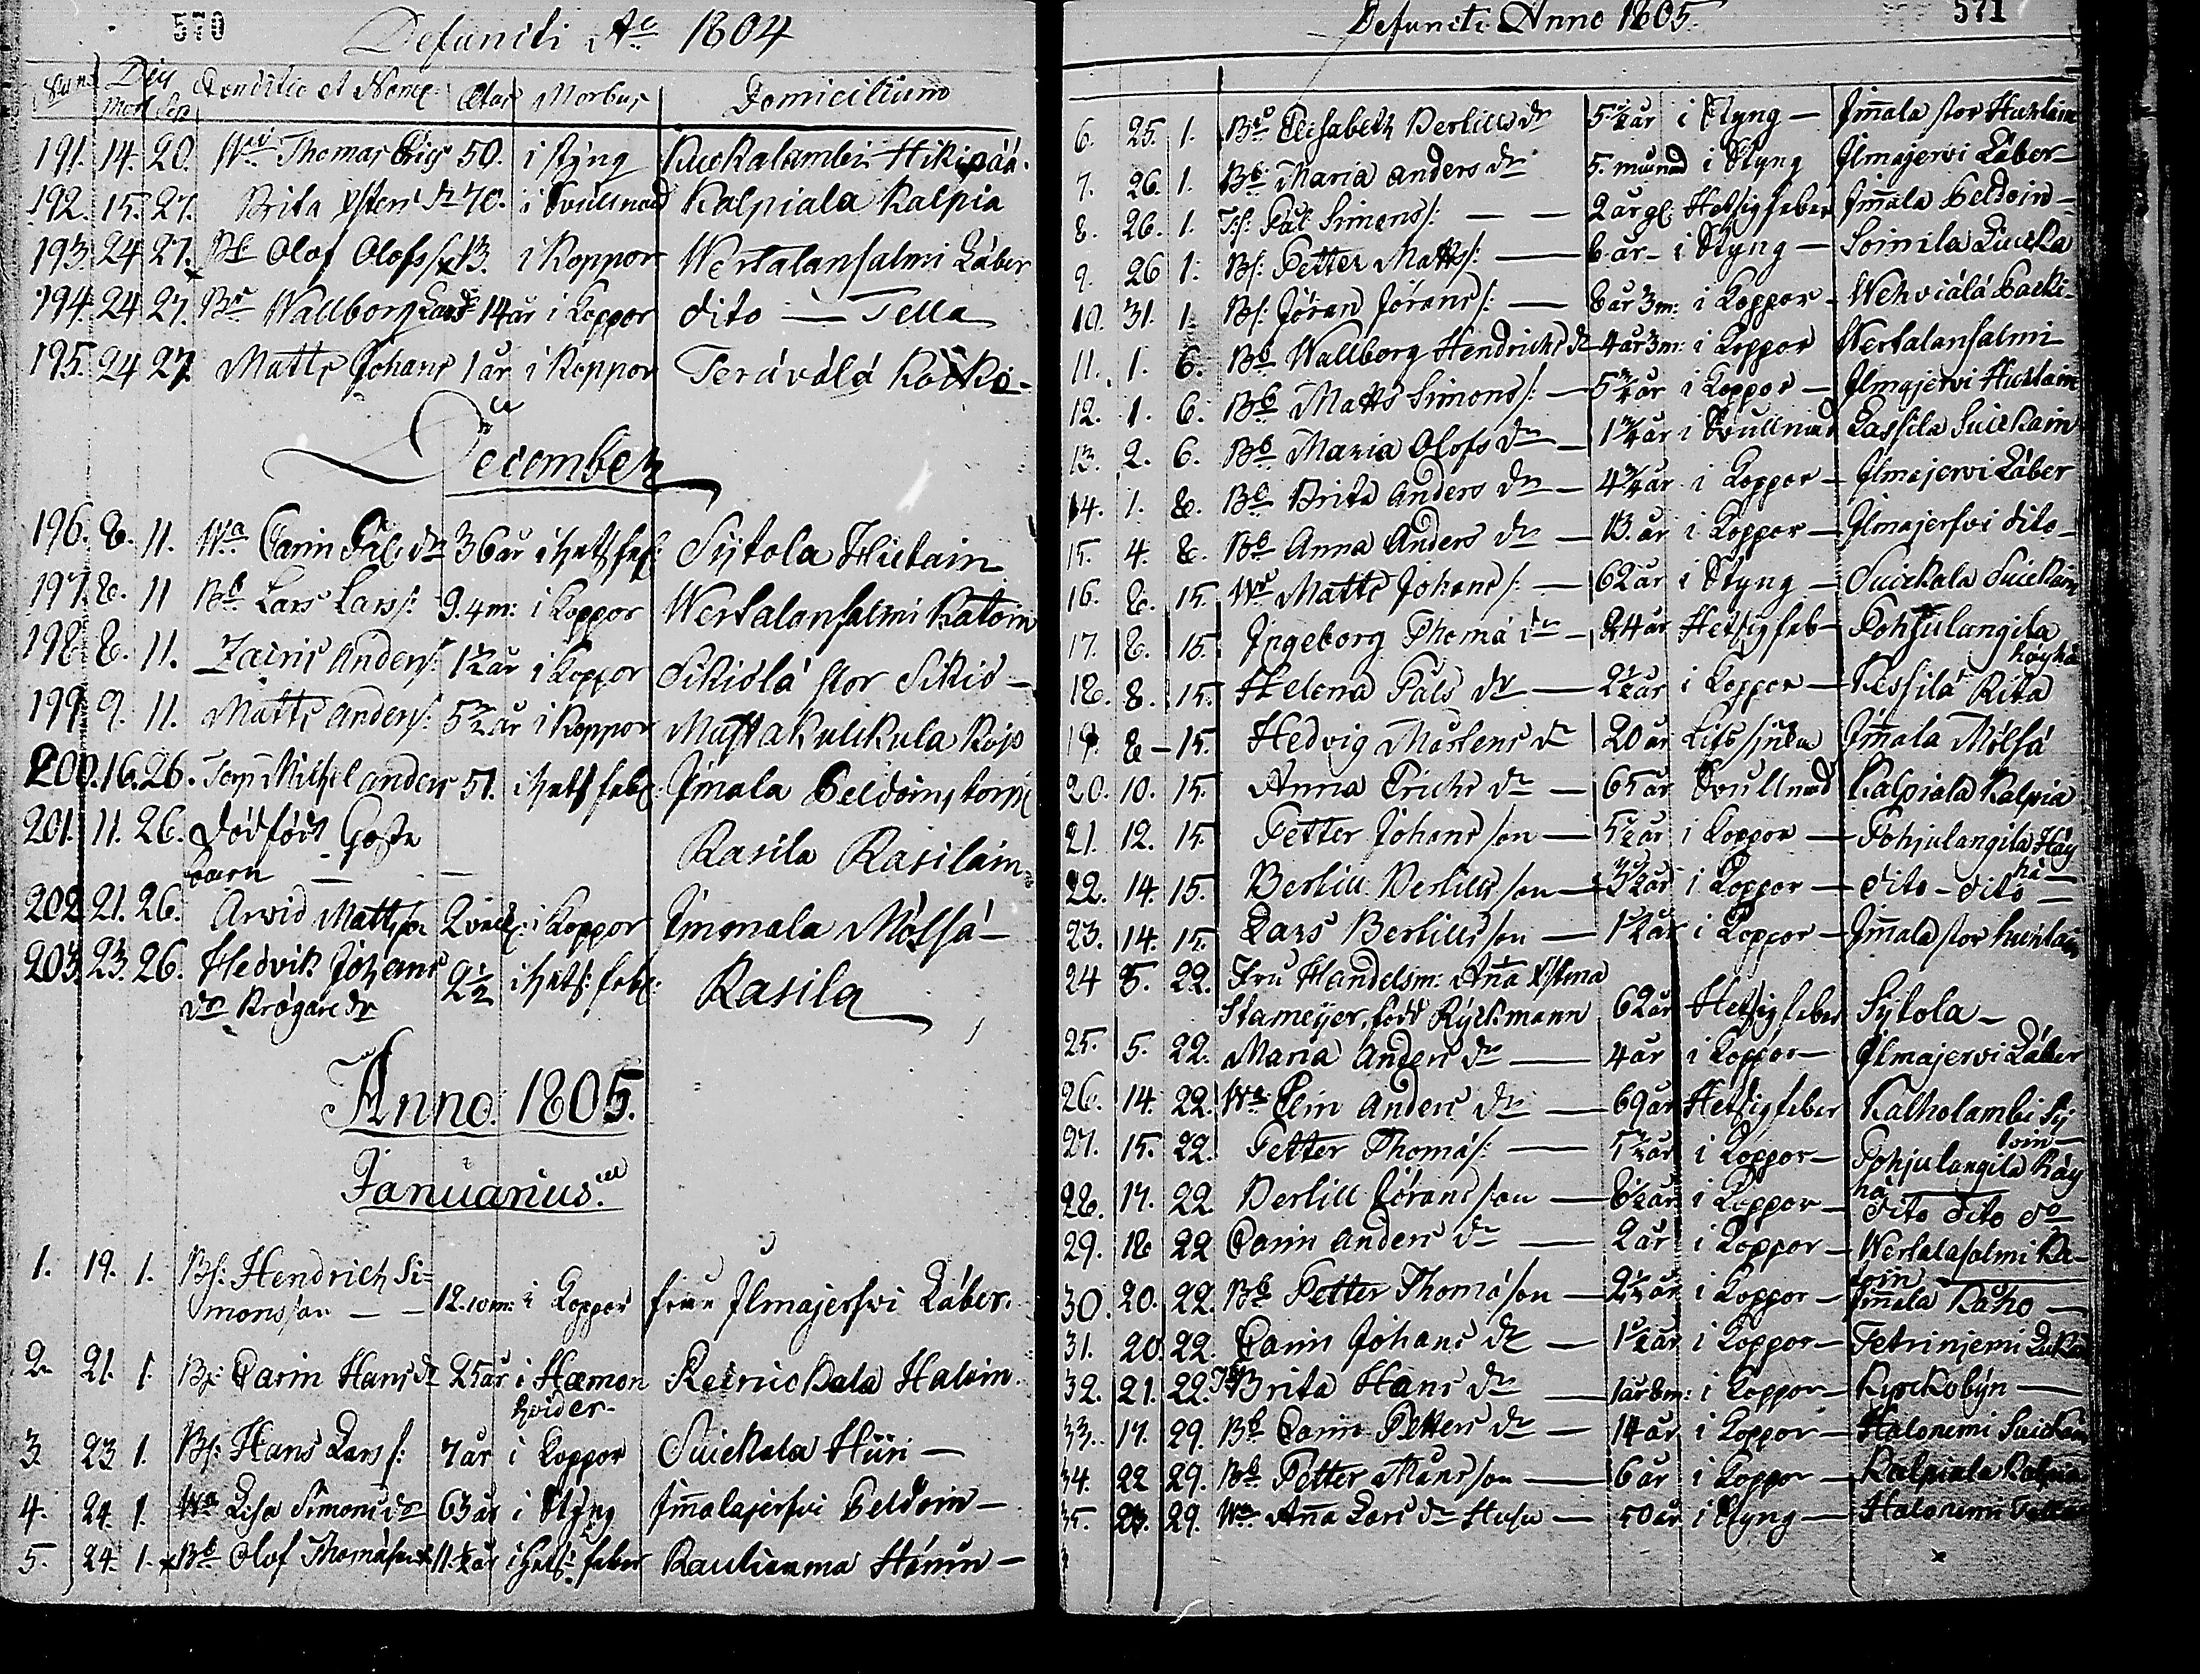 570
Defuncti Ao 1804
Num Dies Conditio et Nome Ætas Morbus Domicilium
Mort Sep
191. 14. 20. Wd Thomas Erics 50. i styng Kuckalambi Hikipää.
192. 15. 27. Brita Xstens dr 70. i Svullnad Kalpiala Kalpia
193. 24 27. Bd Olof Olofss 13. i Koppor Wertalansalmi Läber
194. 24 27. Br Wallborg Lars dr 14 år i Koppor dito — Tella
195. 24 27. Matts Johans 1 år i Koppor Teräválá
December
196. 8. 11. Wa Carin dr 36 år i hets feb: Sytola Hutain
197. 8. 11 Bd Lars Lars s: 9. 4 m: i Koppor Wertalansalmi Katoin
198 8. 11. Zacris Anders s: 1 1/2 år i Koppor Sikiölä stor Sikiö —
199. 9. 11. Matts Anders s: 5 1/2 år i Koppor Mustakulckula
200. 16. 26. Michel Anders 51. i hets feb: Immala Peldoins torp
201. 11. 26. dödfödt Gosse
barn — — Rasila Rasilain
202 21. 26. Arvid Matts son 2 veck: i Koppor Immala Mölsä —
203. 23. 26. Hedvik Johans 2 1/2 i hets: feb: Rasila
dr Krögare dr
Anno 1805.
Januarius.
1. 19. 1. Bs: Hendrich Si=
monsson — — 12. 10 m: i Koppor från Ilmajersvi Läber.
2. 21. 1. Carin Hans dr 25 år i Hæmon Reinickala Haloin.
hoider
3. 23 1. Bs: Hans Lars s: 7 år i Koppor Suickala Hüri —
4. 24. 1. Wa Lisa Simons dr 63 år i Styng Immalajersvi Peldoin —
5. 24. 1. Bd Olof Thomasson 11 1/2 år i hets: feber Rauhianma Hänin —
Defuncti Anno 1805. 571
6. 25. 1. Bd Elisabeth Bertills dr 5 1/2 år i Styng — Immala stor Huhtain
7. 26. 1. Bd Maria Anders dr 5. månad i Styng Ilmajervi Läber —
8. 26. 1. Ts: Pål Simons s: — — 2 år gl: Hetsig feber Immala Peldoin —
9. 26 1. Bs: Petter Matts s: — 6 år — i Styng — Soinila Luckka
10. 31. 1. Bs: Jöran Jörans s: — 8 år 3 m: i Koppor — Wehviälä Backi
11. 1. 6. Bd Wallborg Hendrichs dr 4 år 3 m: i Koppor Wertalansalmi
12. 1. 6. Bd Matts Simons s: — 5 3/4 år i Koppor — Ilmajervi Huhtain
13. 2. 6. Bd Maria Olofs dr — 1 3/4 år i Svullnad Lassila Suickain
14. 1. 8. Bd Brita Anders dr — 4 3/4 år i Koppor — Ilmajervi Läber
15. 4. 8. Bd Anna Anders dr — 13. år i Koppor — Ilmajersvi dito —
16. 8. 15. Wd Matts Johans s: — 62 år i Styng — Suickala Suickain
17. 8. 15. Ingeborg Thoma dr — 24 år Hetsig feb — Pohjulangila
häyhä
18. 8. 15. Helena Påls dr — 2 1/2 år i Koppor — Kessilä Rita
19. 8 — 15. Hedvig Mårtens dr 20 år Lifssjuka Immala Mölsä
20. 10. 15. Anna Erichs dr — 65 år Svullnad Kalpiala Kalpia
21. 12. 15. Petter Johans son — 5 1/2 år i Koppor — Pohjulangila Häy
hä —
22. 14. 15. Bertill Bertills son — 3 1/2 år i Koppor — dito — dito —
23. 14. 15. Lars Bertills son — 1 1/2 år i Koppor — Immala stor huhtain
24 8. 22. Fru Handelsm: Anna Xstina
Stameijer, född Ryckmann 62 år Hetsig feber Sytola —
25. 5. 22. Maria Anders dr — 4 år i Koppor — Ilmajervi Läber
26. 14. 22. Wa Elin Anders dr — 69 år Hetsig feber Kalholambi Sy
toin —
27. 15. 22. Petter Thomas s: — 5 1/2 år i Koppor — Pohjulangila Häy
hä
28. 17. 22. Bertill Jörans son — 8 1/2 år i Koppor — dito dito do
29. 18 22 Carin Anders dr — 2 år i Koppor — Wertalasalmi Ka-
toin
30. 20. 22. Bd Petter Thomasson — 2 1/2 år i Koppor — Immala Räho —
31. 20. 22. Carin Johans dr — 1 1/2 år i Koppor — Petrinjemi
32. 21. 22. Brita Hans dr — 1 år 8 m: i Koppor — Kyrckobyn —
33. 17. 29. Bd Carin Petters dr — 14 år i Koppor — Halonemi Suickain
34. 22 29. Bd Petter Måns son — 6 år i Koppor — Kalpiala Kalpia
35. 23. 29. Wa Anna Lars dr — 50 år i Styng — Halonemi